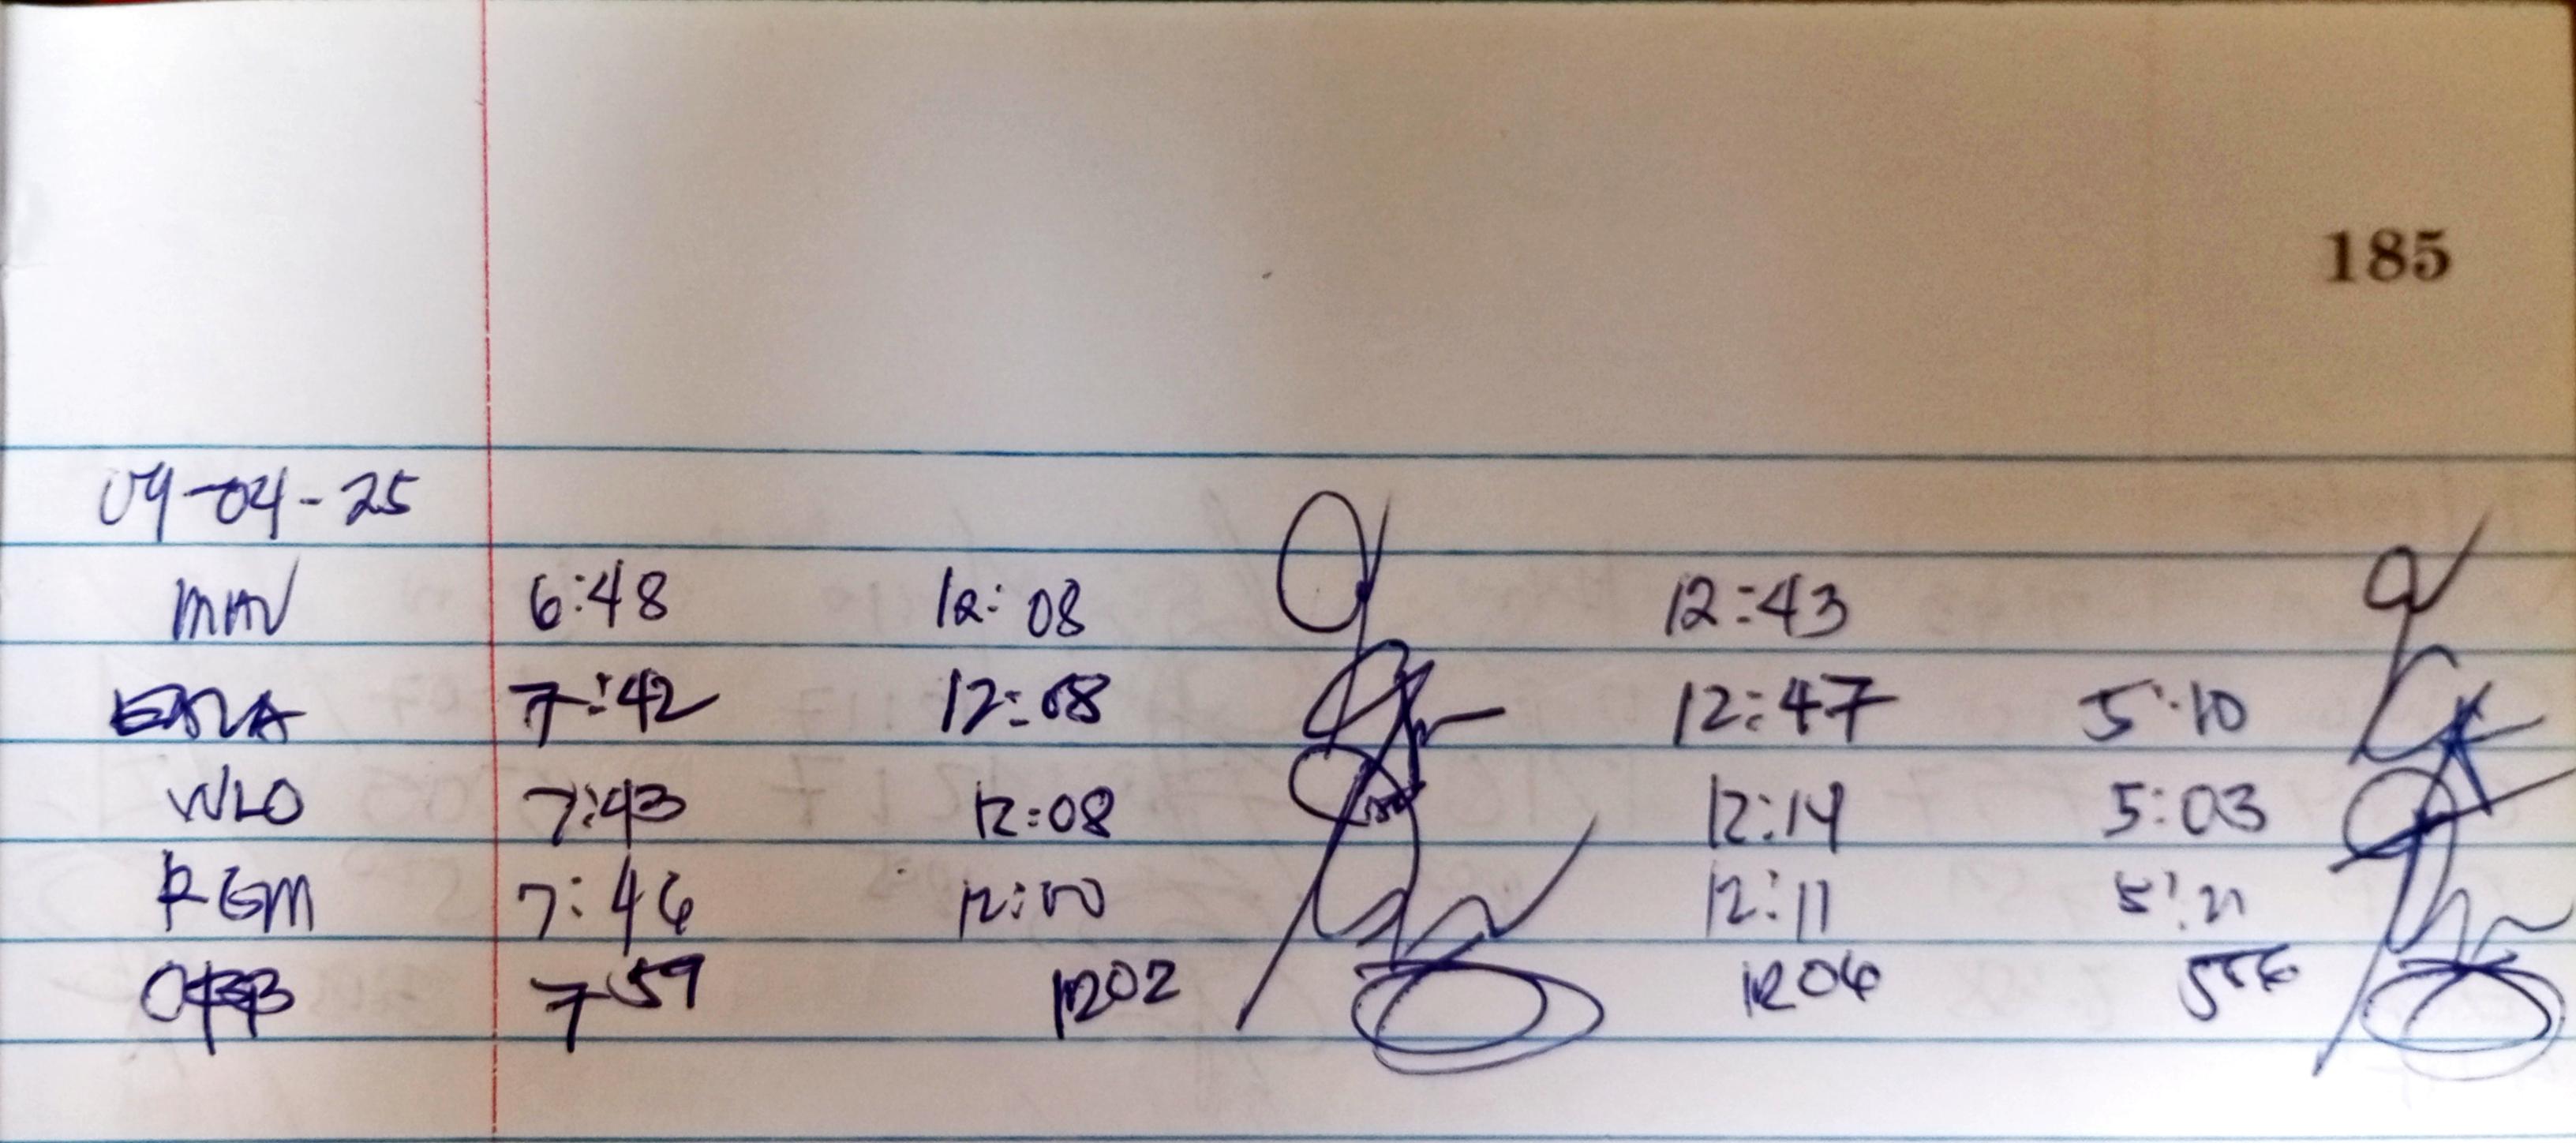 185
09-04-25
MAV 6:48 12:08 12:43
7:42 12:08 12:47 5:10
WLO 7:43 12:08 12:14 5:03
RGM 7:46 12:00 12:11 5:21
7 59 1202 1206